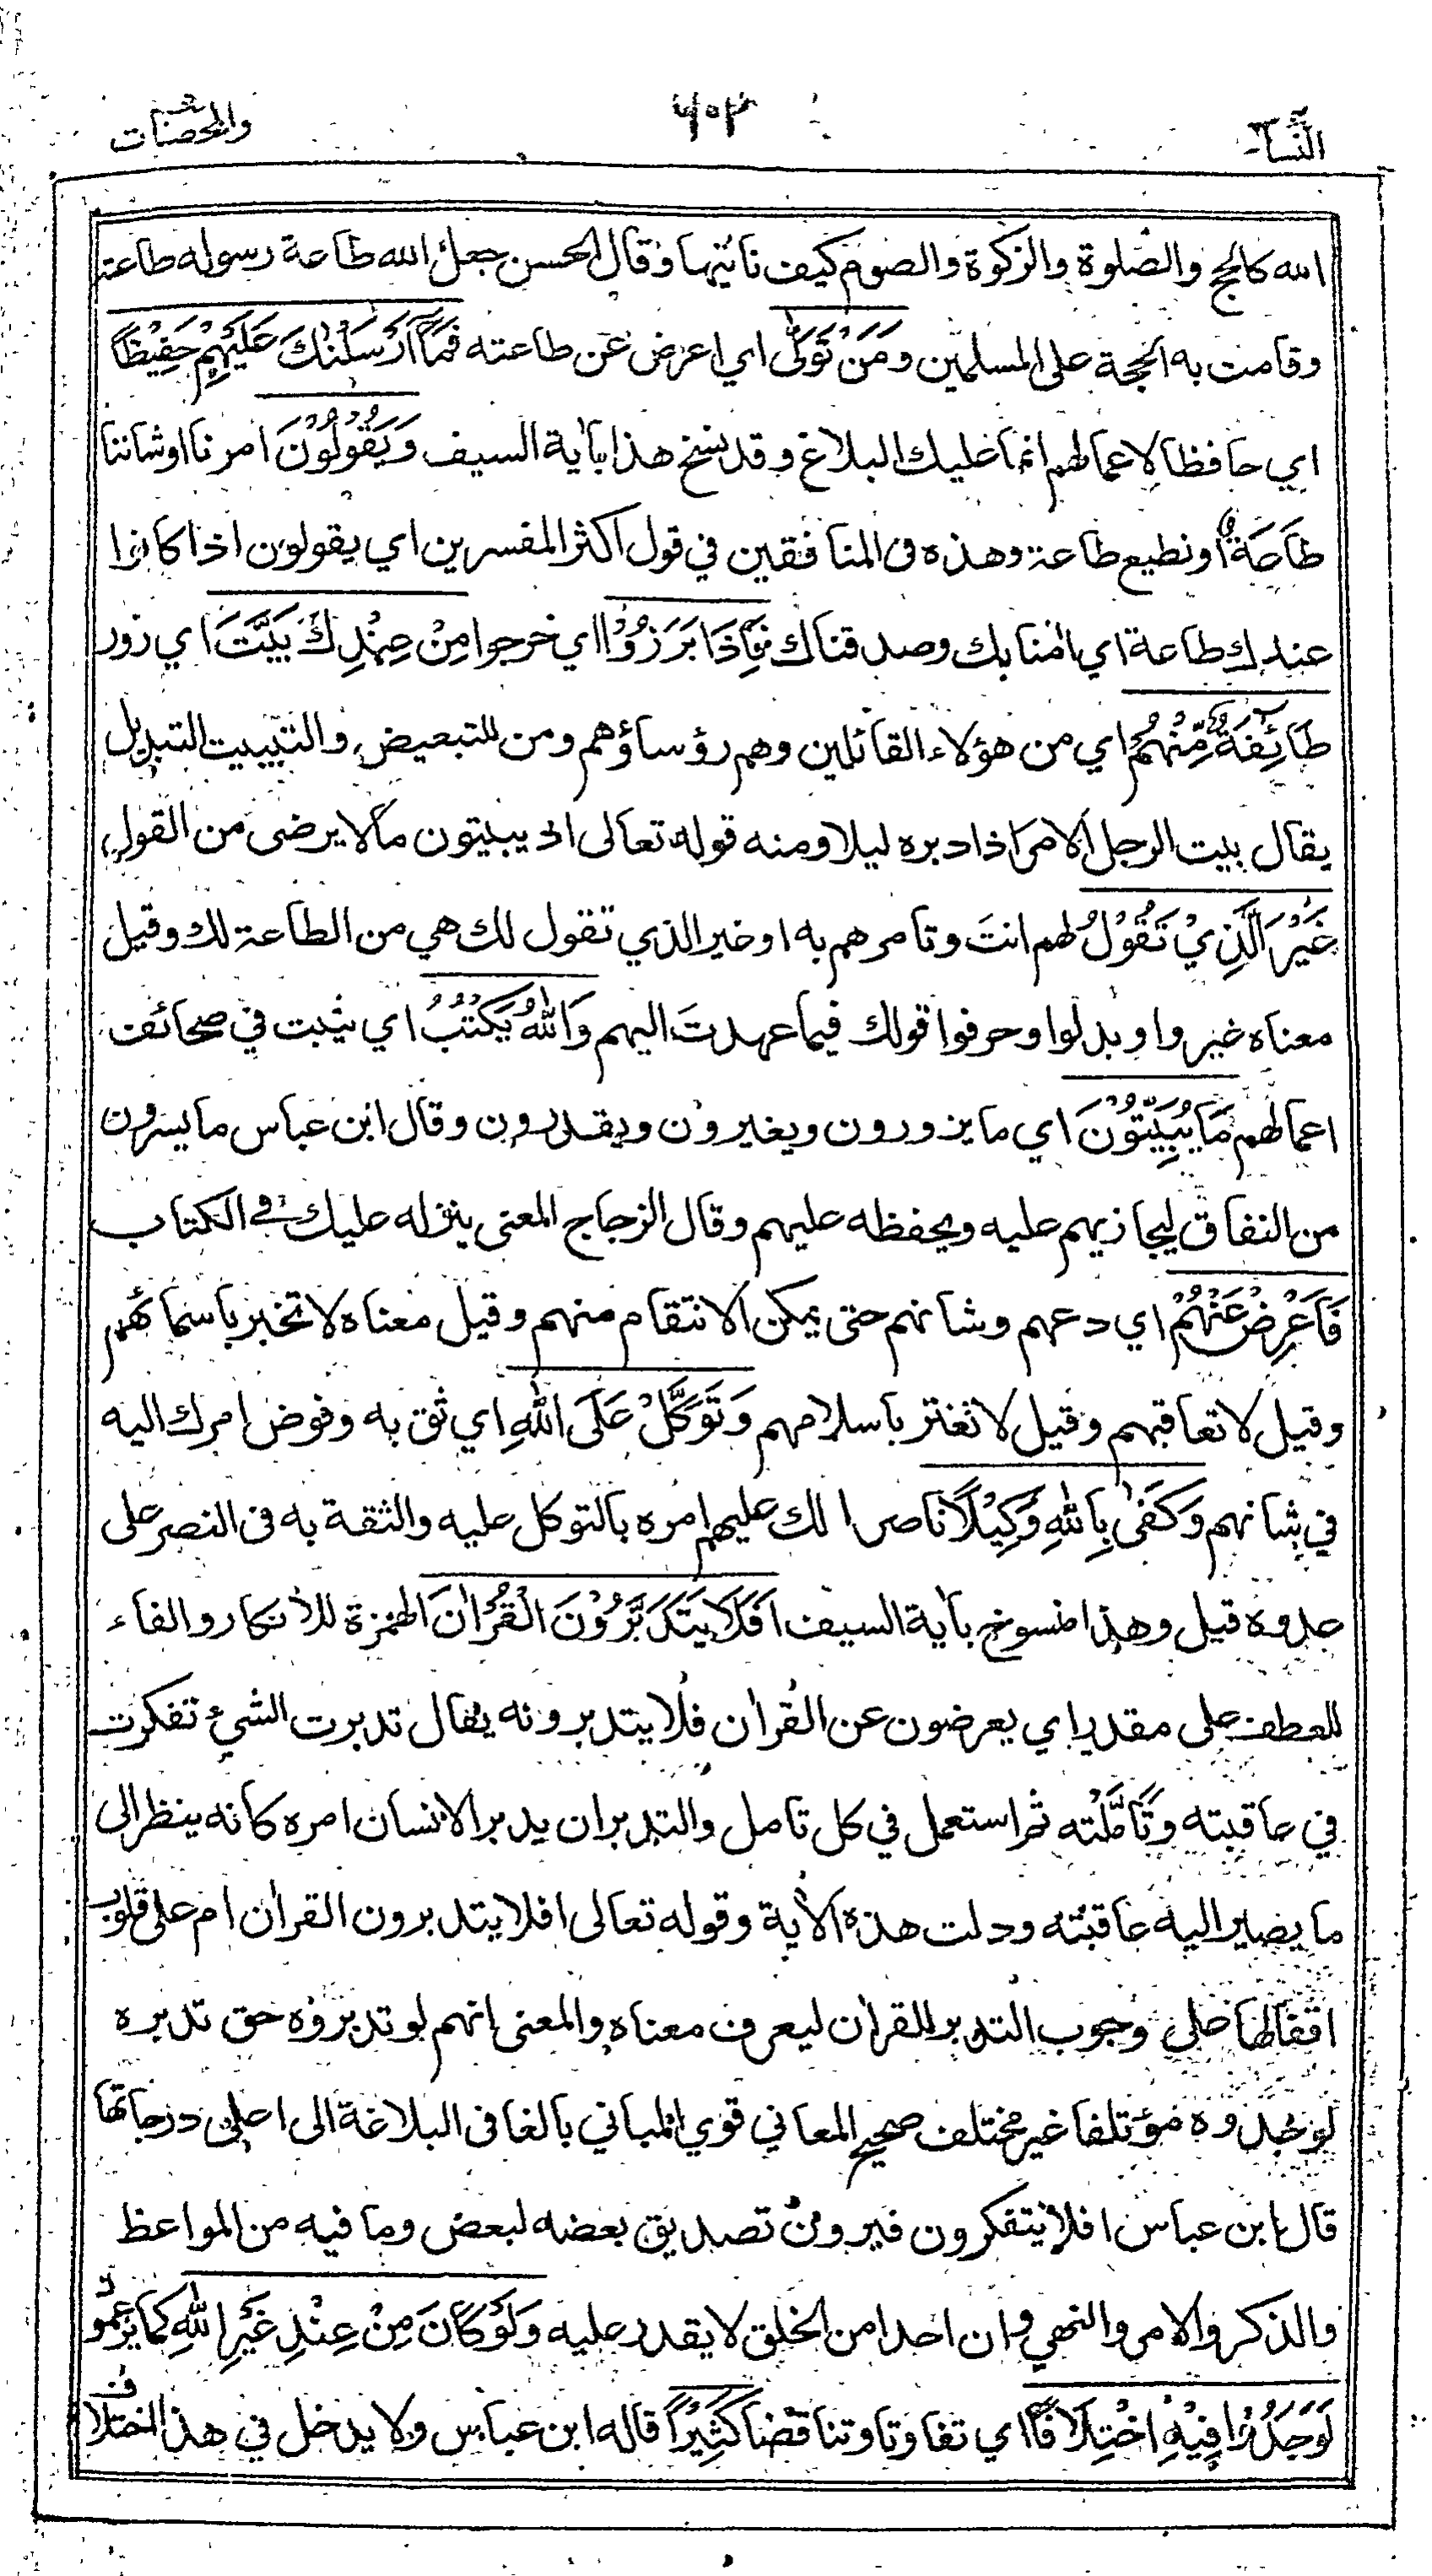 النساء
٦٠٣
والمحصنات
الله كالحج والصلوة والزكوة والصوم كيف ناتيها وقال الحسن جعل الله طاعة رسوله طاعته
وقامت به الحجة على المسلمين وَمَنْ تَوَلّٰى اي اعرض عن طاعته فَمَآ اَرْسَلْنٰكَ عَلَيْهِمْ حَفِيْظًا
اي حافظا لاعمالهم انما عليك البلاغ وقد نسخ هذا باٰية السيف وَيَقُوْلُوْنَ امرنا او شاننا
طَاعَةٌ او نطيع طاعة وهذه في المنافقين في قول اكثر المفسرين اي يقولون اذا كانوا
عندك طاعة اي اٰمنا بك وصدقناك فَاِذَا بَرَزُوْا اي خرجوا مِنْ عِنْدِكَ بَيَّتَ اي زور
طَآئِفَةٌ مِّنْهُمْ اي من هؤلاء القائلين وهم رؤساؤهم ومن للتبعيض والتبييت التبديل
يقال بيت الرجل الامر اذا دبره ليلا ومنه قوله تعالى اذ يبيتون مالا يرضى من القول
غَيْرَ الَّذِيْ تَقُوْلُ لهم انتَ وتامرهم به او غير الذي تقول لك هي من الطاعة لك وقيل
معناه غيروا وبدلوا وحرفوا قولك فيما عهدتَ اليهم وَاللّٰهُ يَكْتُبُ اي يثبت في صحائف
اعمالهم مَا يُبَيِّتُوْنَ اي ما يزورون ويغيرون ويقدرون وقال ابن عباس ما يسرون
من النفاق ليجازيهم عليه ويحفظه عليهم وقال الزجاج المعنى ينزله عليك في الكتاب
فَاَعْرِضْ عَنْهُمْ اي دعهم وشانهم حتى يمكن الانتقام منهم وقيل معناه لا تخبر باسمائهم
وقيل لا تعاقبهم وقيل لا تغتر باسلامهم وَتَوَكَّلْ عَلَى اللّٰهِ اي ثق به وفوض امرك اليه
في شانهم وَكَفٰى بِاللّٰهِ وَكِيْلًا ناصرا لك عليهم امره بالتوكل عليه والثقة به في النصر على
عدوه قيل وهذا منسوخ باٰية السيف اَفَلَا يَتَدَبَّرُوْنَ الْقُرْاٰنَ الهمزة للانكار والفاء
للعطف على مقدر اي يعرضون عن القراٰن فلا يتدبرونه يقال تدبرت الشيء تفكرت
في عاقبته وتَأَمَّلْته ثم استعمل في كل تامل والتدبر ان يدبر الانسان امره كانه ينظر الى
ما يصير اليه عاقبته ودلت هذه الاٰية وقوله تعالى افلا يتدبرون القراٰن ام على قلوب
اقفالها على وجوب التدبر للقراٰن ليعرف معناه والمعنى انهم لو تدبروه حق تدبره
لوجدوه مؤتلفا غير مختلف صحيح المعاني قوي المباني بالغا في البلاغة الى اعلى درجاتها
قال ابن عباس افلا يتفكرون فيرون تصديق بعضه لبعض وما فيه من المواعظ
والذكر والامر والنهي وان احدا من الخلق لا يقدر عليه وَلَوْ كَانَ مِنْ عِنْدِ غَيْرِ اللّٰهِ كما يزعمو
لَوَجَدُوْا فِيْهِ اخْتِلَافًا اي تفاوتا وتناقضا كَثِيْرًا قاله ابن عباس ولا يدخل في هذا اختلاف